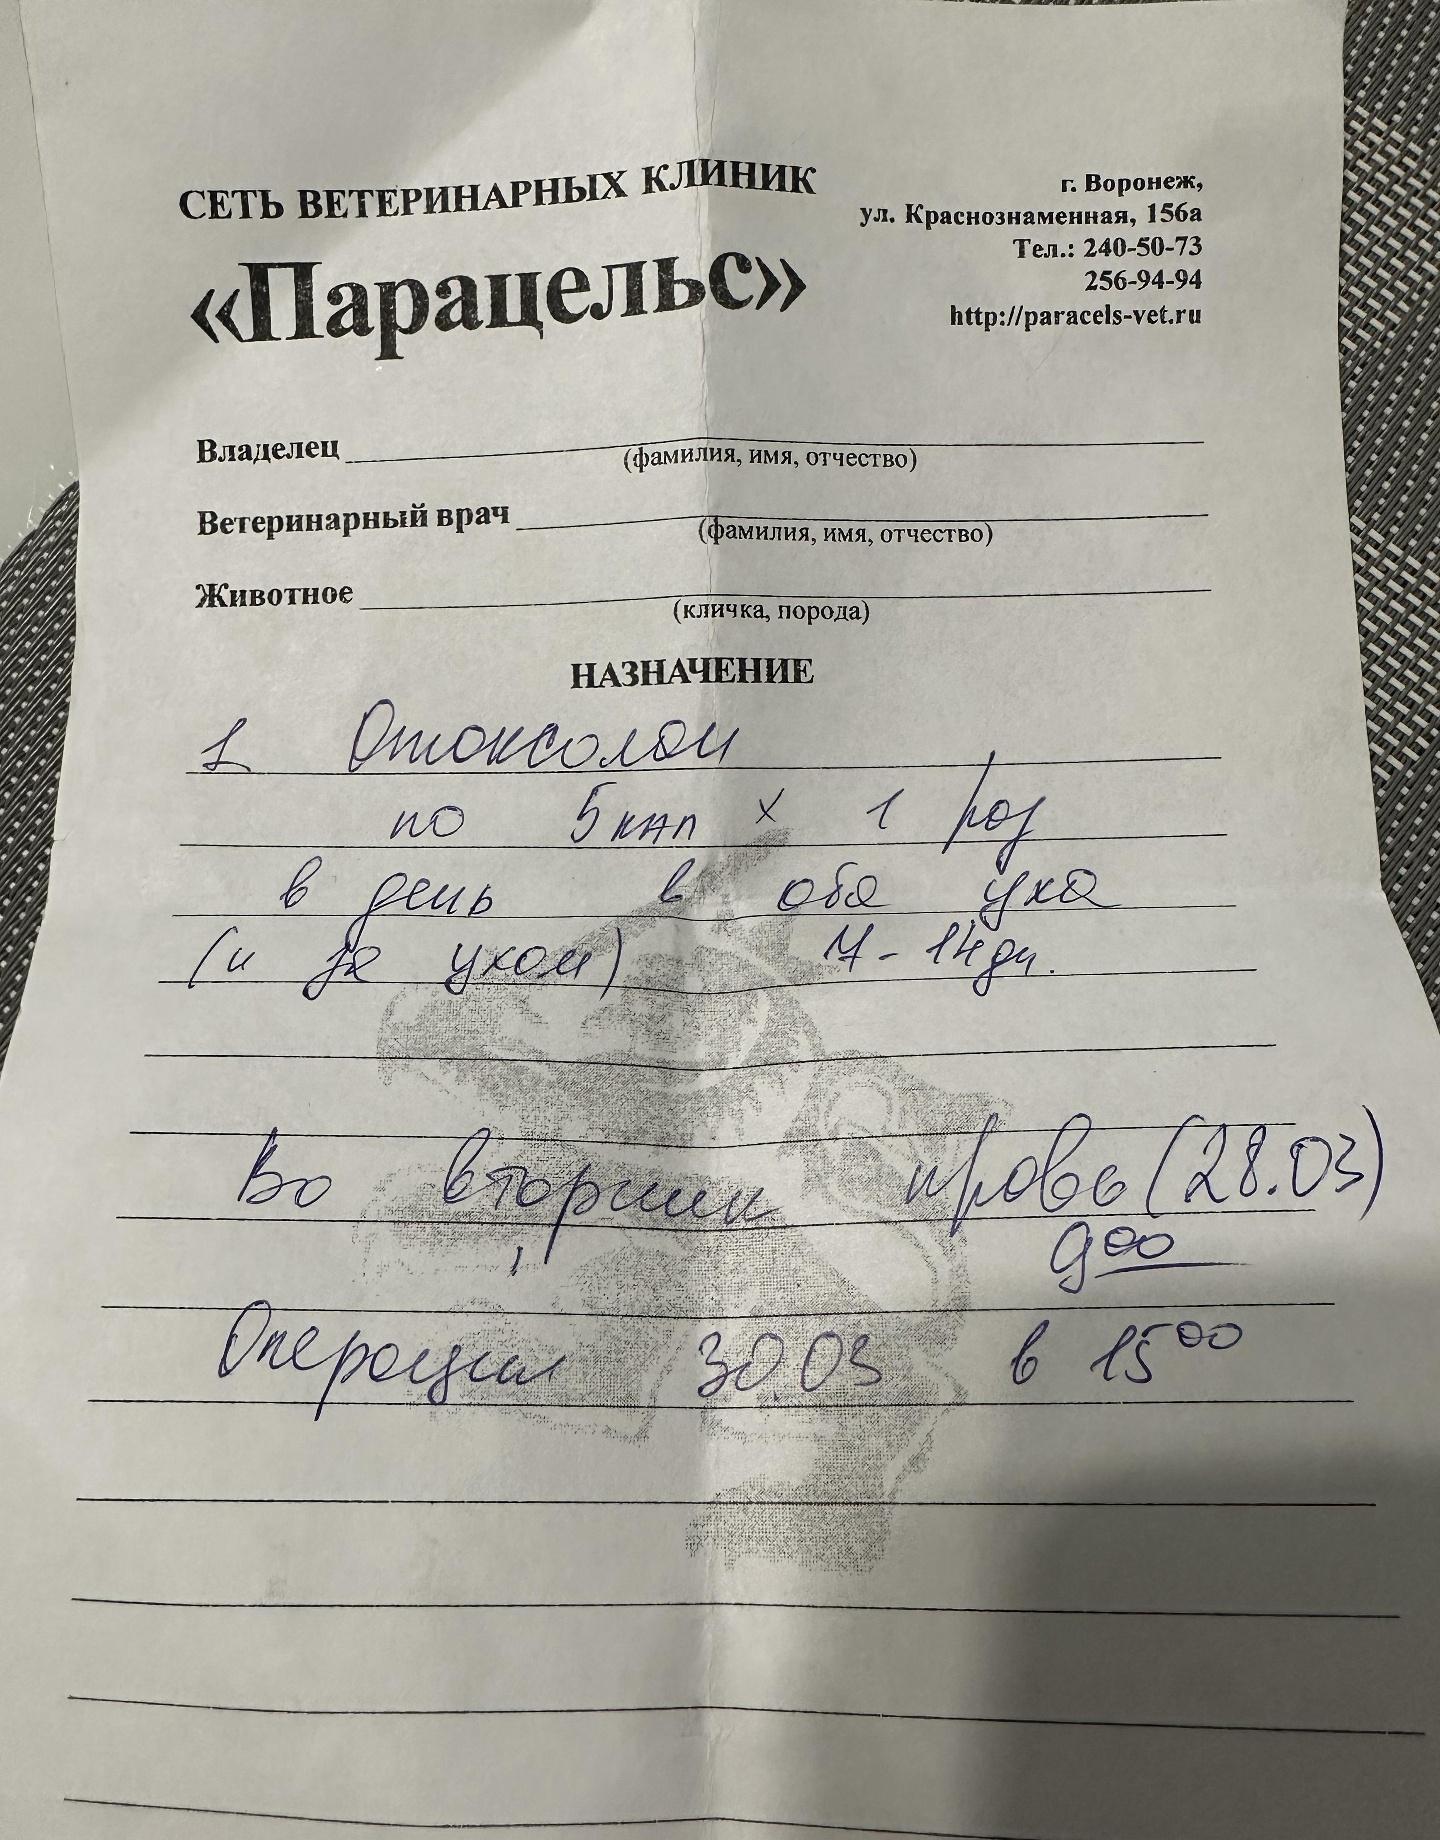 СЕТЬ ВЕТЕРИНАРНЫХ КЛИНИК
«Парацельс»
г. Воронеж,
ул. Краснознаменная, 156а
Тел.: 240-50-73
256-94-94
http://paracels-vet.ru
Владелец
(фамилия, имя, отчество)
Ветеринарный врач
(фамилия, имя, отчество)
Животное
(кличка, порода)
НАЗНАЧЕНИЕ
1 Отоксолан
по 5 кап х 1 раз
в день в оба уха
(и за ухом) 7-14 дн.
Во вторник кровь (28.03)
9 00
Операция 30.03 в 15 00